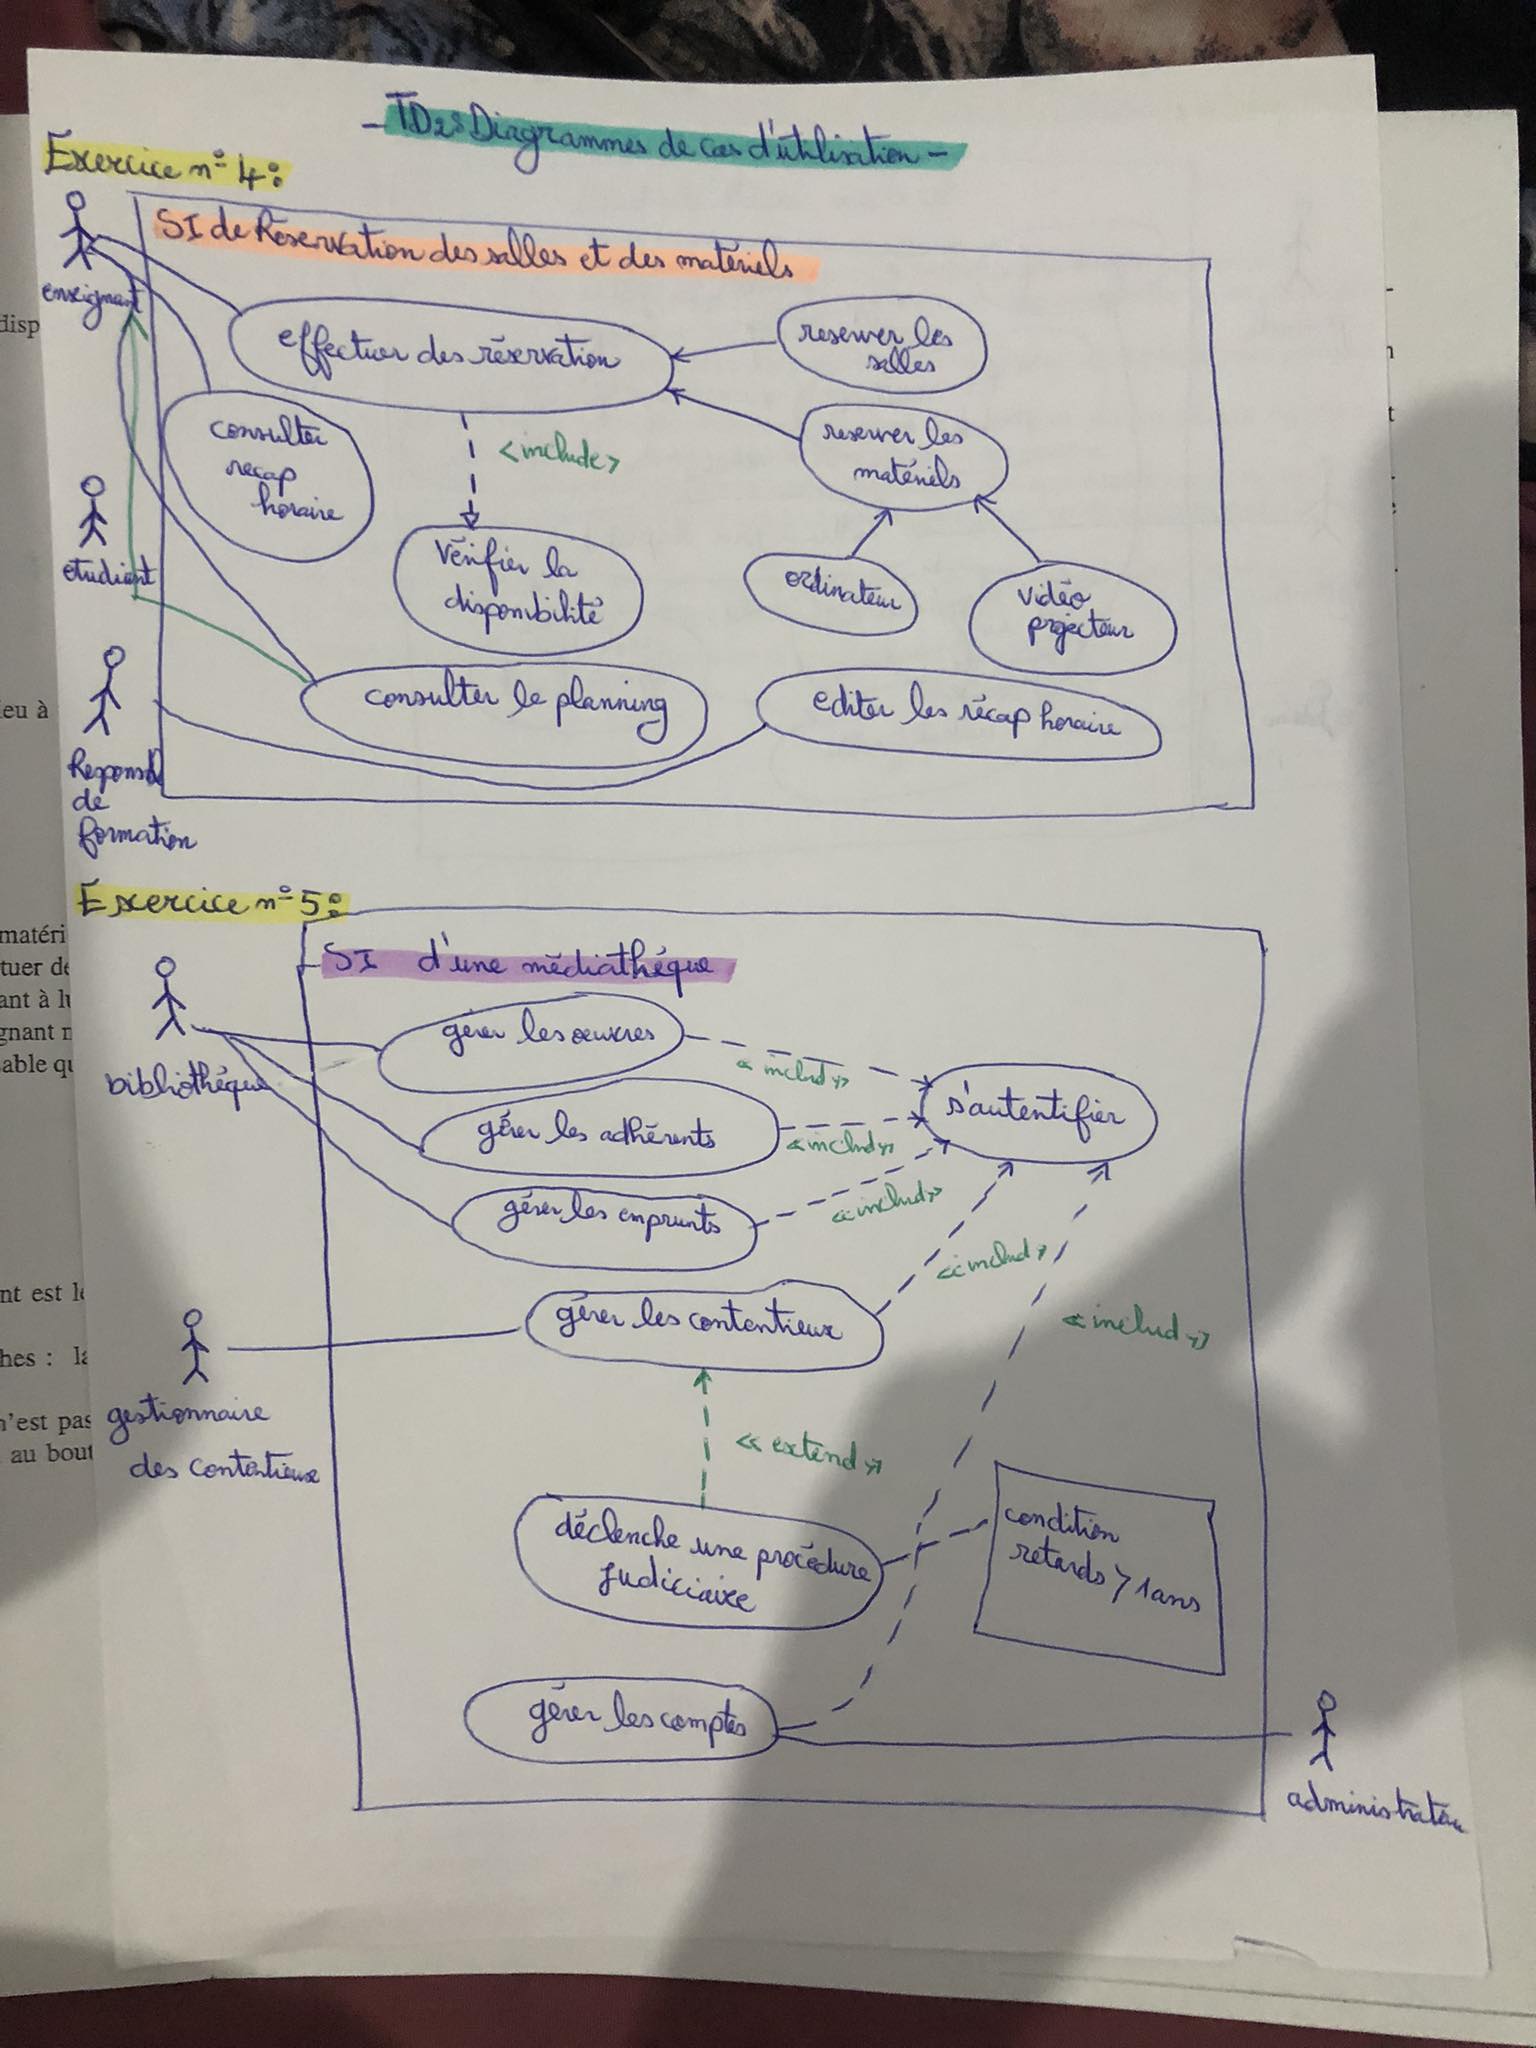 - TD2: Diagrammes de cas d'utilisation -
Exercice n° 4:
SI de Réservation des salles et des matériels
enseignant
effectuer des réservation
reserver les
salles
consulter
recap
horaire
<include>
reserver les
matériels
etudiant
Vérifier la
disponibilité
ordinateur
vidéo
projecteur
consulter le planning
editer les récap horaire
de
formation
Exercice n° 5:
SI d'une médiathéque
bibliothéque
gérer les œuvres
<<includ>>
s'autentifier
gérer les adhérents
<<includ>>
gérer les emprunts
<<includ>>
<<includ>>
gérer les contentieux
<<includ>>
gestionnaire
des contentieux
<<extend>>
déclenche une procédure
judiciaire
condition
retards > 1ans
gérer les comptes
disp
ieu à
matéri
tuer de
ant à lu
gnant n
able qu
nt est le
hes : la
n'est pas
au bout